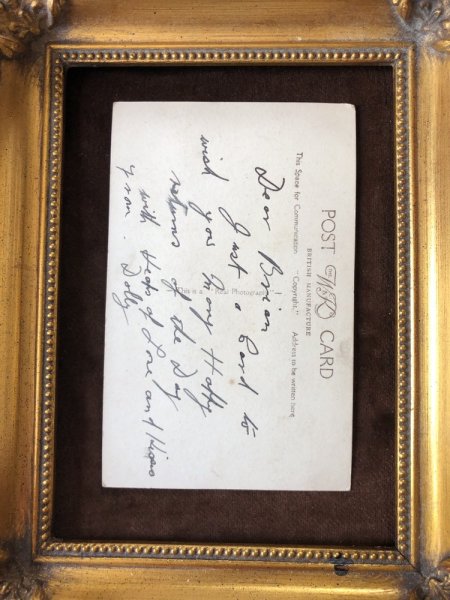 POST CARD
BRITISH MANUFACTURE
This Space for Communication "Copyright." Address to be written here
Dear Brian
Just a Card to
wish you Many Happy
This is a Real Photograph
returns of the Day
with Heaps of Love and Kisses
from. Dolly